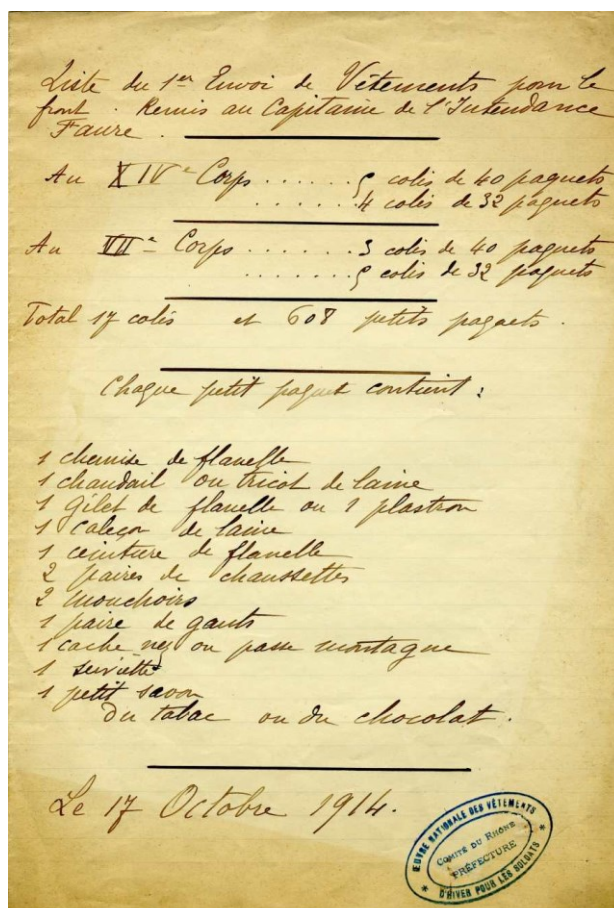 Liste du 1er Envoi de Vêtements pour le
front. Remis au Capitaine de l'Intendance
Faure.
Au XIVe Corps ...... 5 colis de 40 paquets
...... 4 colis de 32 paquets
Au VIIe Corps ...... 3 colis de 40 paquets
....... 5 colis de 32 paquets
Total 17 colis et 608 petits paquets.
Chaque petit paquet contient :
1 chemise de flanelle
1 chandail ou tricot de laine
1 gilet de flanelle ou 1 plastron
1 caleçon de laine
1 ceinture de flanelle
2 paires de chaussettes
2 mouchoirs
1 paire de gants
1 cache nez ou passe montagne
1 serviette
1 petit savon
du tabac ou du chocolat.
Le 17 Octobre 1914.
ŒUVRE NATIONALE DES VÊTEMENTS
COMITÉ DU RHÔNE
PRÉFECTURE
* D'HIVER POUR LES SOLDATS *